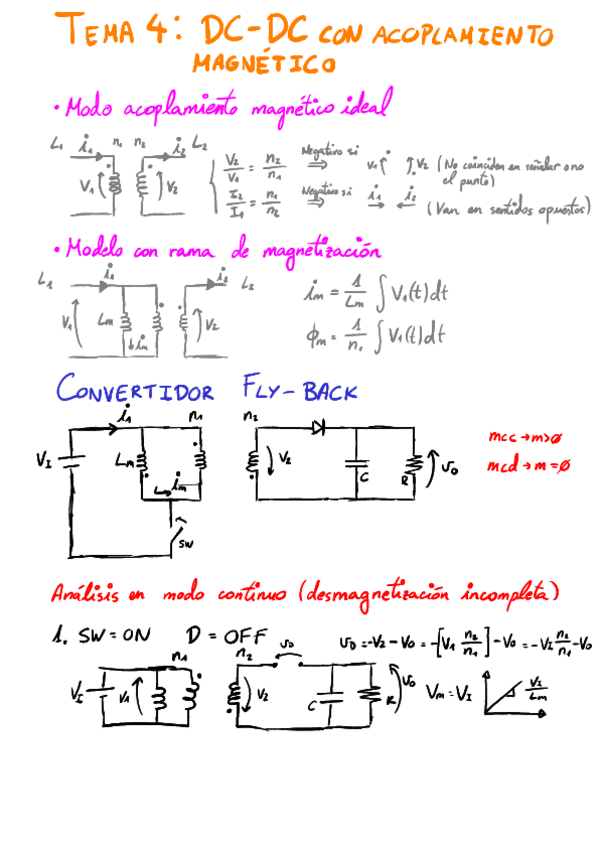 TEMA 4: DC-DC CON ACOPLAMIENTO
MAGNÉTICO
• Modo acoplamiento magnético ideal
L1 i1 n1 n2 i2 L2
V1 V2
V2/V1 = n2/n1 Negativo si ⇒ V1 V2 (No coinciden en señalar o no el punto)
I2/I1 = n1/n2 Negativo si ⇒ i1 i2 (Van en sentidos opuestos)
• Modelo con rama de magnetización
L1 i1 i2 L2
V1 Lm im V2
im = 1/Lm ∫ V1(t)dt
φm = 1/n1 ∫ V1(t)dt
CONVERTIDOR FLY-BACK
i1 n1 n2
VI Lm im V2 C R vo
SW
mcc → m>0
mcd → m=0
Análisis en modo continuo (desmagnetización incompleta)
1. SW=ON D=OFF vD = -V2 - Vo = -[V1 n2/n1] - Vo = -VI n2/n1 - Vo
n1 n2 vD
VI V1 V2 C R vo Vm = VI VI/Lm